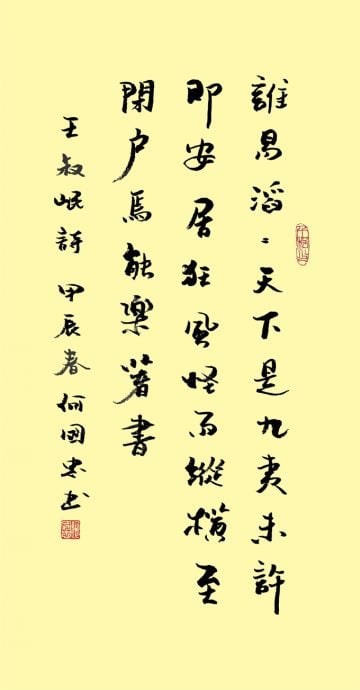 誰易滔〻天下是九夷未許
即安居狂風怪雨縱橫至
閉户焉能樂著書
王叔岷詩 甲辰春何國忠书